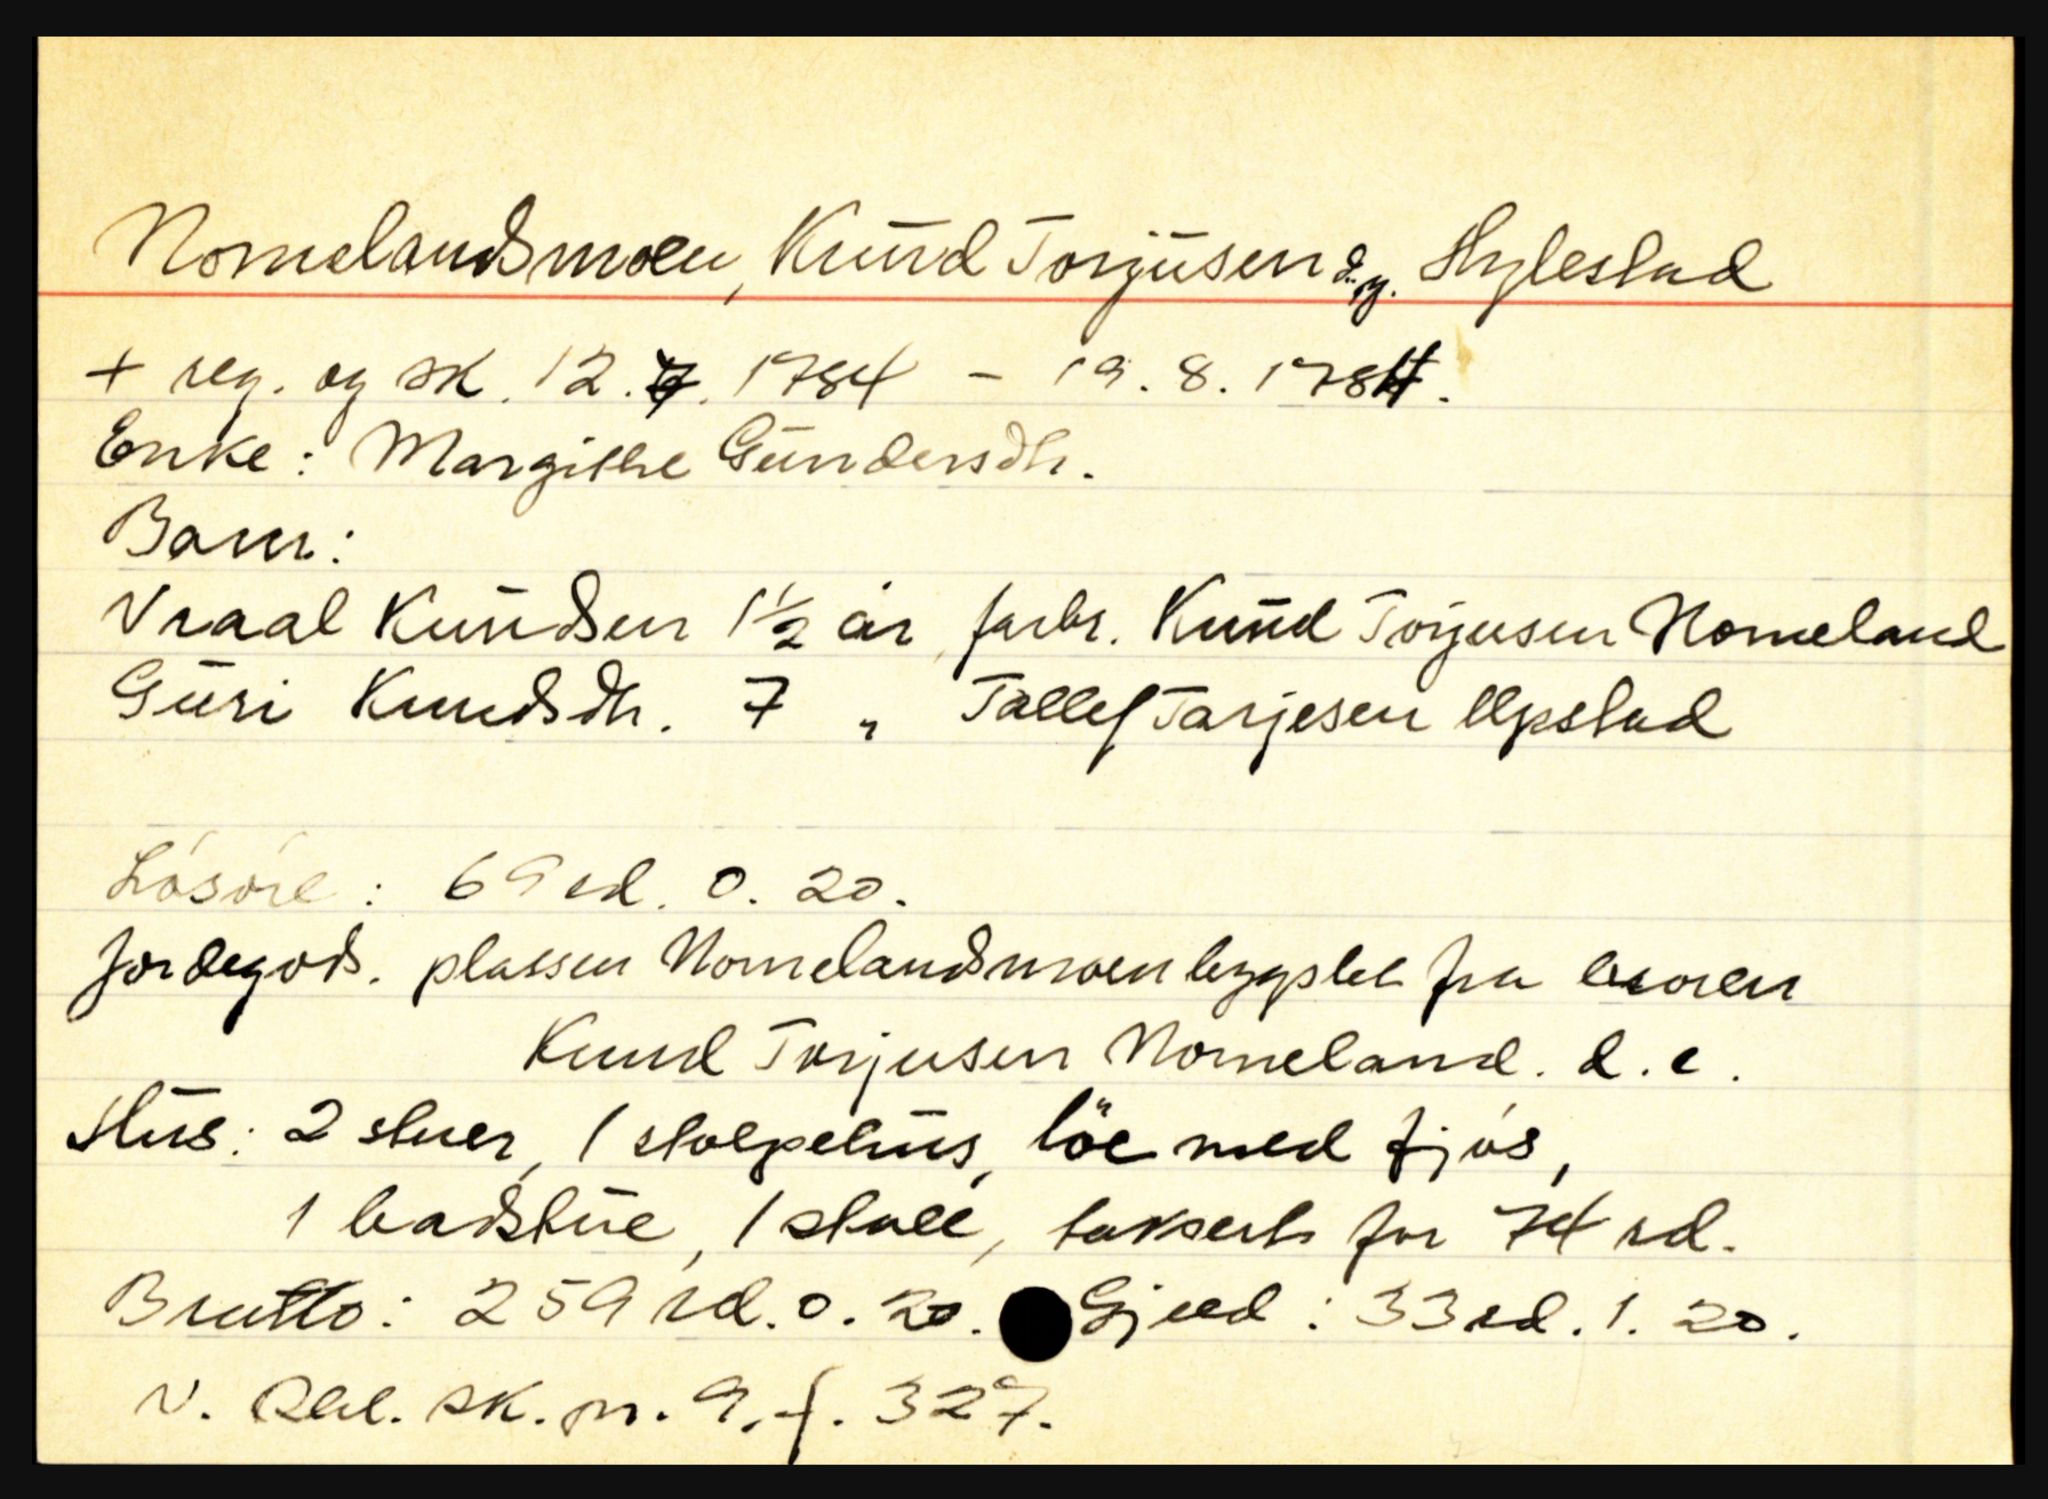 Nomelandsmoen, Knud Torjusen d.y. Hylestad
+ reg. og sk. 12.7. 1784 - 19.8.1784.
Enke: Margithe Gundersdtr.
Barn:
Vraal Knudsen 1½ år, farbr. Knud Torjusen Nomeland
Guri Knudsdtr. 7 " Tallef Tarjesen Upstad
Løsøre: 69 rd. 0. 20.
Jordegods. plassen Nomelandsmoen bygslet fra broren
Knud Torjusen Nomeland. d.e.
Hus: 2 stuer, 1 stolpehus, löe med fjøs,
1 badstue, 1 stall, taksert for 74 rd.
Brutto: 259 rd. 0. 20. Gjeld: 33 rd. 1. 20.
N. Rbl. sk. pr. 9, f. 327.